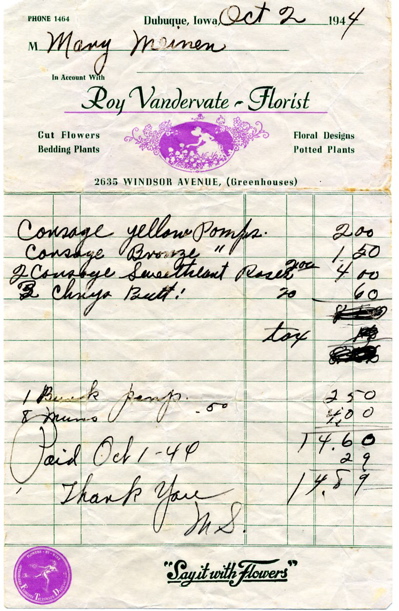 PHONE 1464
Dubuque, Iowa, Oct 2 1944
M Mary Meinen
In Account With
Roy Vandervate - Florist
Cut Flowers
Bedding Plants
Floral Designs
Potted Plants
2635 WINDSOR AVENUE, (Greenhouses)
Consage yellow Pomps. 2 00
Consage Bronze " 1.50
2 Consage Sweetheart Roses 2 00 4 00
3 Chrys Butt! 20 60
tax
1 Bunch pomp. 2 50
8 Mums .50 4.00
14.60
Paid Oct 1-44 29
Thank You 14.89
M.S.
"Say it with Flowers"